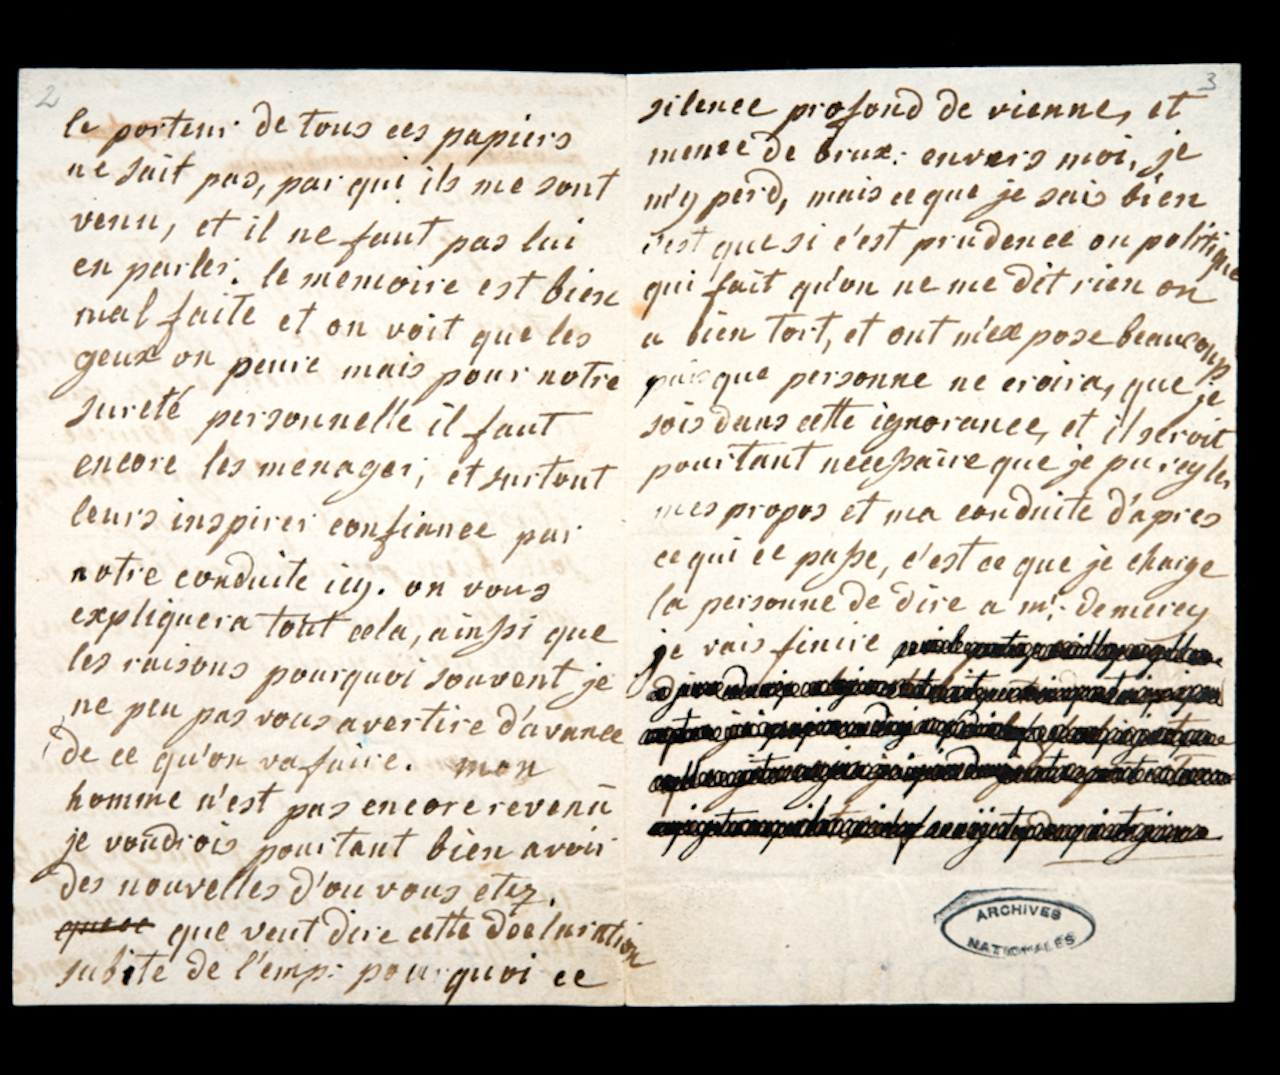 2
le porteur de tous ces papiers
ne sait pas, par qui ils me sont
venu, et il ne faut pas lui
en parler. le memoire est bien
mal faite et on voit que les
geux on peure mais pour notre
sureté personnelle il faut
encore les menager, et surtout
leurs inspirer confiance par
notre conduite icy. on vous
expliquera tout cela, ainssi que
les raisons pourquoi souvent je
ne peu pas vous avertire d'avance
de ce qu'on va faire. mon
homme n'est pas encore revenu
je voudrois pourtant bien avoir
des nouvelles d'ou vous etez.
que veut dire cette declaration
subite de l'emp: pourquoi ce
3
silence profond de vienne, et
meme de brux: envers moi, je
m'y perd, mais ce que je sais bien
c'est que si c'est prudence ou politique
qui fait qu'on ne me dit rien on
a bien tort, et ont m'expose beaucoup
puisque personne ne croira, que je
sois dans cette ignorance, et il seroit
pourtant necessaire que je pu regler
mes propos et ma conduite d'apres
ce qui ce passe, c'est ce que je charge
la personne de dire a mr: de mercy
je vais finire
ARCHIVES
NATIONALES